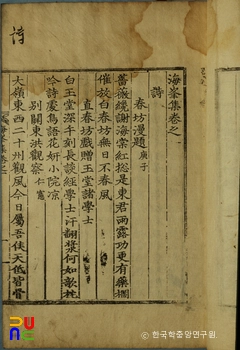 詩
海峯集卷之一
詩
春坊漫題 庚子
薔薇纔謝海棠紅捴是東君雨露功更有藥欄
催放白春坊無日不春風
直春坊戲贈玉堂諸學士
白玉堂深午刻長談經學士汗翻漿何如歌枕
吟詩處鳥語花姸小院凉
別關東洪觀察 仁憲
大嶺東西二十州觀風今日屬吾侯天低皆骨
한국학중앙연구원